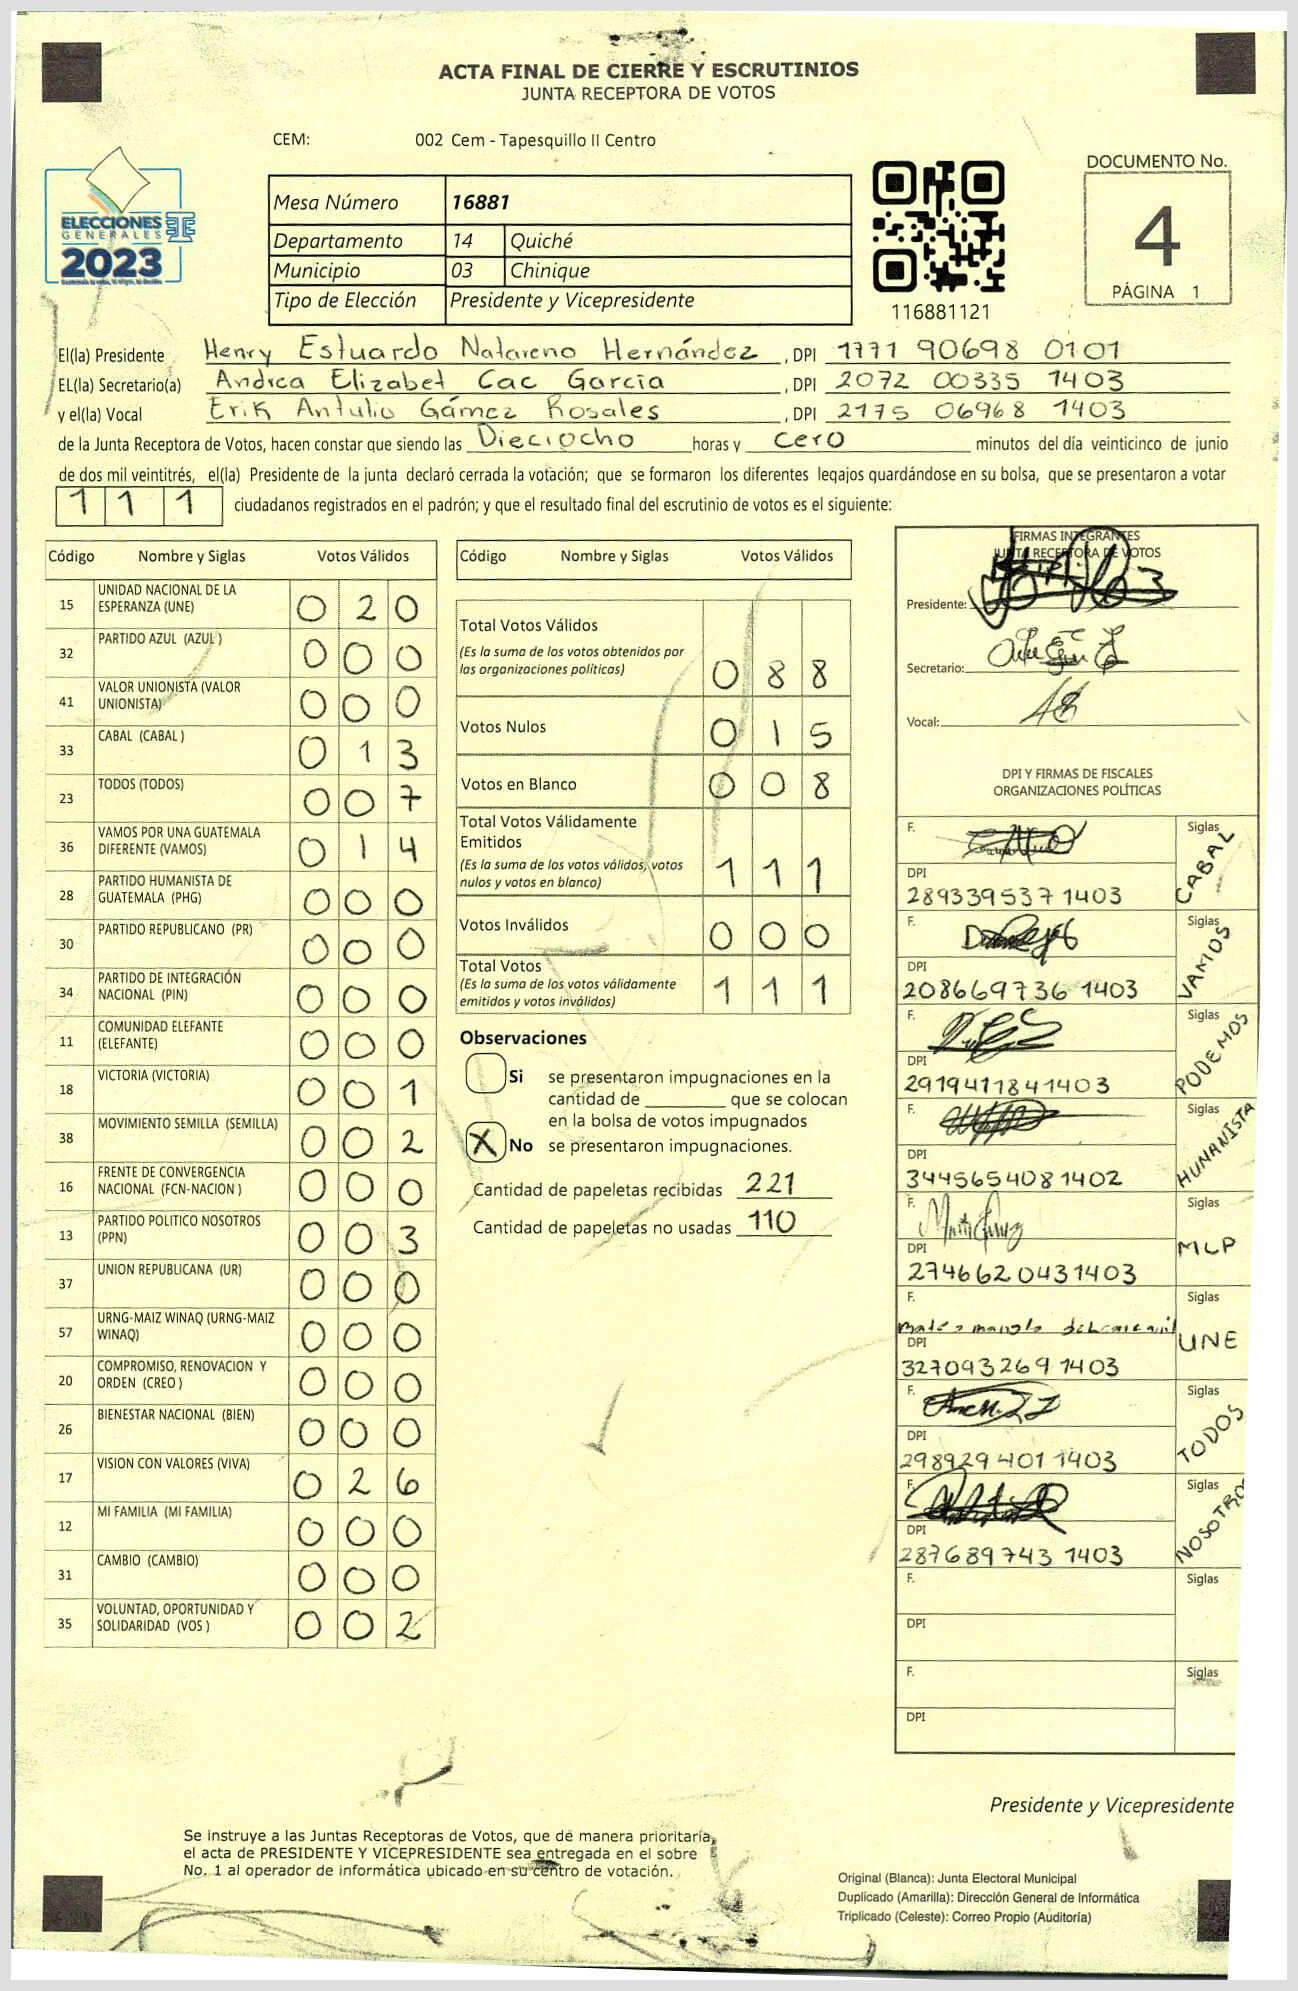 ACTA FINAL DE CIERRE Y ESCRUTINIOS
JUNTA RECEPTORA DE VOTOS
CEM: 002 Cem - Tapesquillo II Centro
DOCUMENTO No.
4
PÁGINA 1
ELECCIONES
GENERALES
2023
Mesa Número 16881
Departamento 14 Quiché
Municipio 03 Chinique
Tipo de Elección Presidente y Vicepresidente
116881121
El(la) Presidente Henry Estuardo Natareno Hernández, DPI 1771 90698 0101
EL(la) Secretario(a) Andrea Elizabet Cac García, DPI 2072 00335 1403
y el(la) Vocal Erik Antulio Gámez Rosales, DPI 2175 06968 1403
de la Junta Receptora de Votos, hacen constar que siendo las Dieciocho horas y cero minutos del día veinticinco de junio
de dos mil veintitrés, el(la) Presidente de la junta declaró cerrada la votación; que se formaron los diferentes legajos guardándose en su bolsa, que se presentaron a votar
1 1 1 ciudadanos registrados en el padrón; y que el resultado final del escrutinio de votos es el siguiente:
Código Nombre y Siglas Votos Válidos
15 UNIDAD NACIONAL DE LA ESPERANZA (UNE) 0 2 0
32 PARTIDO AZUL (AZUL ) 0 0 0
41 VALOR UNIONISTA (VALOR UNIONISTA) 0 0 0
33 CABAL (CABAL ) 0 1 3
23 TODOS (TODOS) 0 0 7
36 VAMOS POR UNA GUATEMALA DIFERENTE (VAMOS) 0 1 4
28 PARTIDO HUMANISTA DE GUATEMALA (PHG) 0 0 0
30 PARTIDO REPUBLICANO (PR) 0 0 0
34 PARTIDO DE INTEGRACIÓN NACIONAL (PIN) 0 0 0
11 COMUNIDAD ELEFANTE (ELEFANTE) 0 0 0
18 VICTORIA (VICTORIA) 0 0 1
38 MOVIMIENTO SEMILLA (SEMILLA) 0 0 2
16 FRENTE DE CONVERGENCIA NACIONAL (FCN-NACION ) 0 0 0
13 PARTIDO POLITICO NOSOTROS (PPN) 0 0 3
37 UNION REPUBLICANA (UR) 0 0 0
57 URNG-MAIZ WINAQ (URNG-MAIZ WINAQ) 0 0 0
20 COMPROMISO, RENOVACION Y ORDEN (CREO ) 0 0 0
26 BIENESTAR NACIONAL (BIEN) 0 0 0
17 VISION CON VALORES (VIVA) 0 2 6
12 MI FAMILIA (MI FAMILIA) 0 0 0
31 CAMBIO (CAMBIO) 0 0 0
35 VOLUNTAD, OPORTUNIDAD Y SOLIDARIDAD (VOS ) 0 0 2
Código Nombre y Siglas Votos Válidos
Total Votos Válidos
(Es la suma de los votos obtenidos por
las organizaciones políticas) 0 8 8
Votos Nulos 0 1 5
Votos en Blanco 0 0 8
Total Votos Válidamente
Emitidos
(Es la suma de los votos válidos, votos
nulos y votos en blanco) 1 1 1
Votos Inválidos 0 0 0
Total Votos
(Es la suma de los votos válidamente
emitidos y votos inválidos) 1 1 1
Observaciones
Si se presentaron impugnaciones en la
cantidad de ________ que se colocan
en la bolsa de votos impugnados
X No se presentaron impugnaciones.
Cantidad de papeletas recibidas 221
Cantidad de papeletas no usadas 110
FIRMAS INTEGRANTES
JUNTA RECEPTORA DE VOTOS
Presidente:
Secretario:
Vocal:
DPI Y FIRMAS DE FISCALES
ORGANIZACIONES POLÍTICAS
F. Siglas CABAL
DPI
289339537 1403
F. Siglas VAMOS
DPI
208669736 1403
F. Siglas PODEMOS
DPI
2919411841403
F. Siglas HUNANISTA
DPI
3445654081402
F. Siglas MLP
DPI
2746620431403
F. Siglas UNE
DPI
327093269 1403
F. Siglas TODOS
DPI
298929401 1403
F. Siglas NOSOTROS
DPI
287689743 1403
F. Siglas
DPI
F. Siglas
DPI
Presidente y Vicepresidente
Se instruye a las Juntas Receptoras de Votos, que de manera prioritaria,
el acta de PRESIDENTE Y VICEPRESIDENTE sea entregada en el sobre
No. 1 al operador de informática ubicado en su centro de votación.
Original (Blanca): Junta Electoral Municipal
Duplicado (Amarilla): Dirección General de Informática
Triplicado (Celeste): Correo Propio (Auditoría)